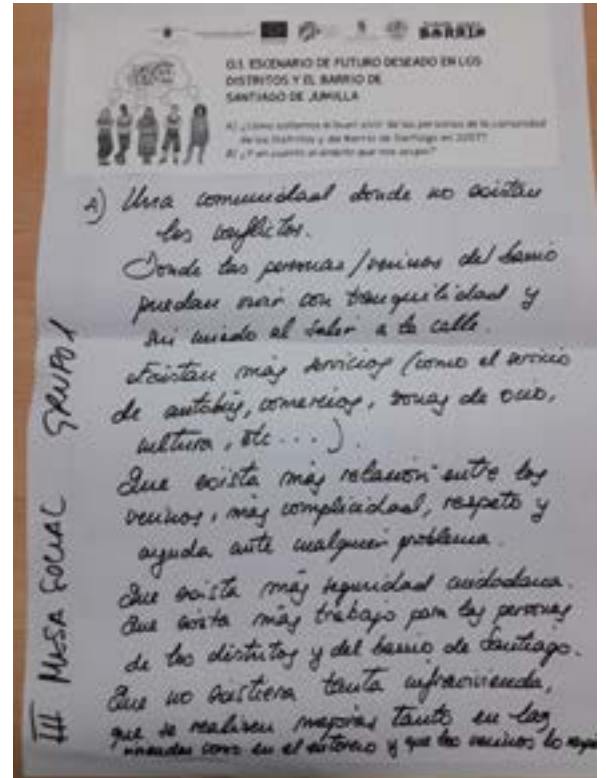 BARRIO
0.1. ESCENARIO DE FUTURO DESEADO EN LOS
DISTRITOS Y EL BARRIO DE
SANTIAGO DE JUMILLA
A) ¿Cómo soñamos el buen vivir de las personas de la comunidad
de los Distritos y del Barrio de Santiago en 2037?
B) ¿Y en cuanto al ámbito que nos ocupa?
A) Una comunidad donde no existan
los conflictos.
Donde las personas/vecinos del barrio
puedan vivir con tranquilidad y
sin miedo al salir a la calle.
Existan más servicios (como el servicio
de autobús, comercios, zonas de ocio,
cultura, etc...).
Que exista más relación entre los
vecinos, más complicidad, respeto y
ayuda ante cualquier problema.
Que exista más seguridad ciudadana.
Que exista más trabajo para las personas
de los distritos y del barrio de Santiago.
Que no existiera tanta infravivienda,
que se realicen mejoras tanto en las
viviendas como en el entorno y que los vecinos lo
III MESA SOCIAL GRUPO 1